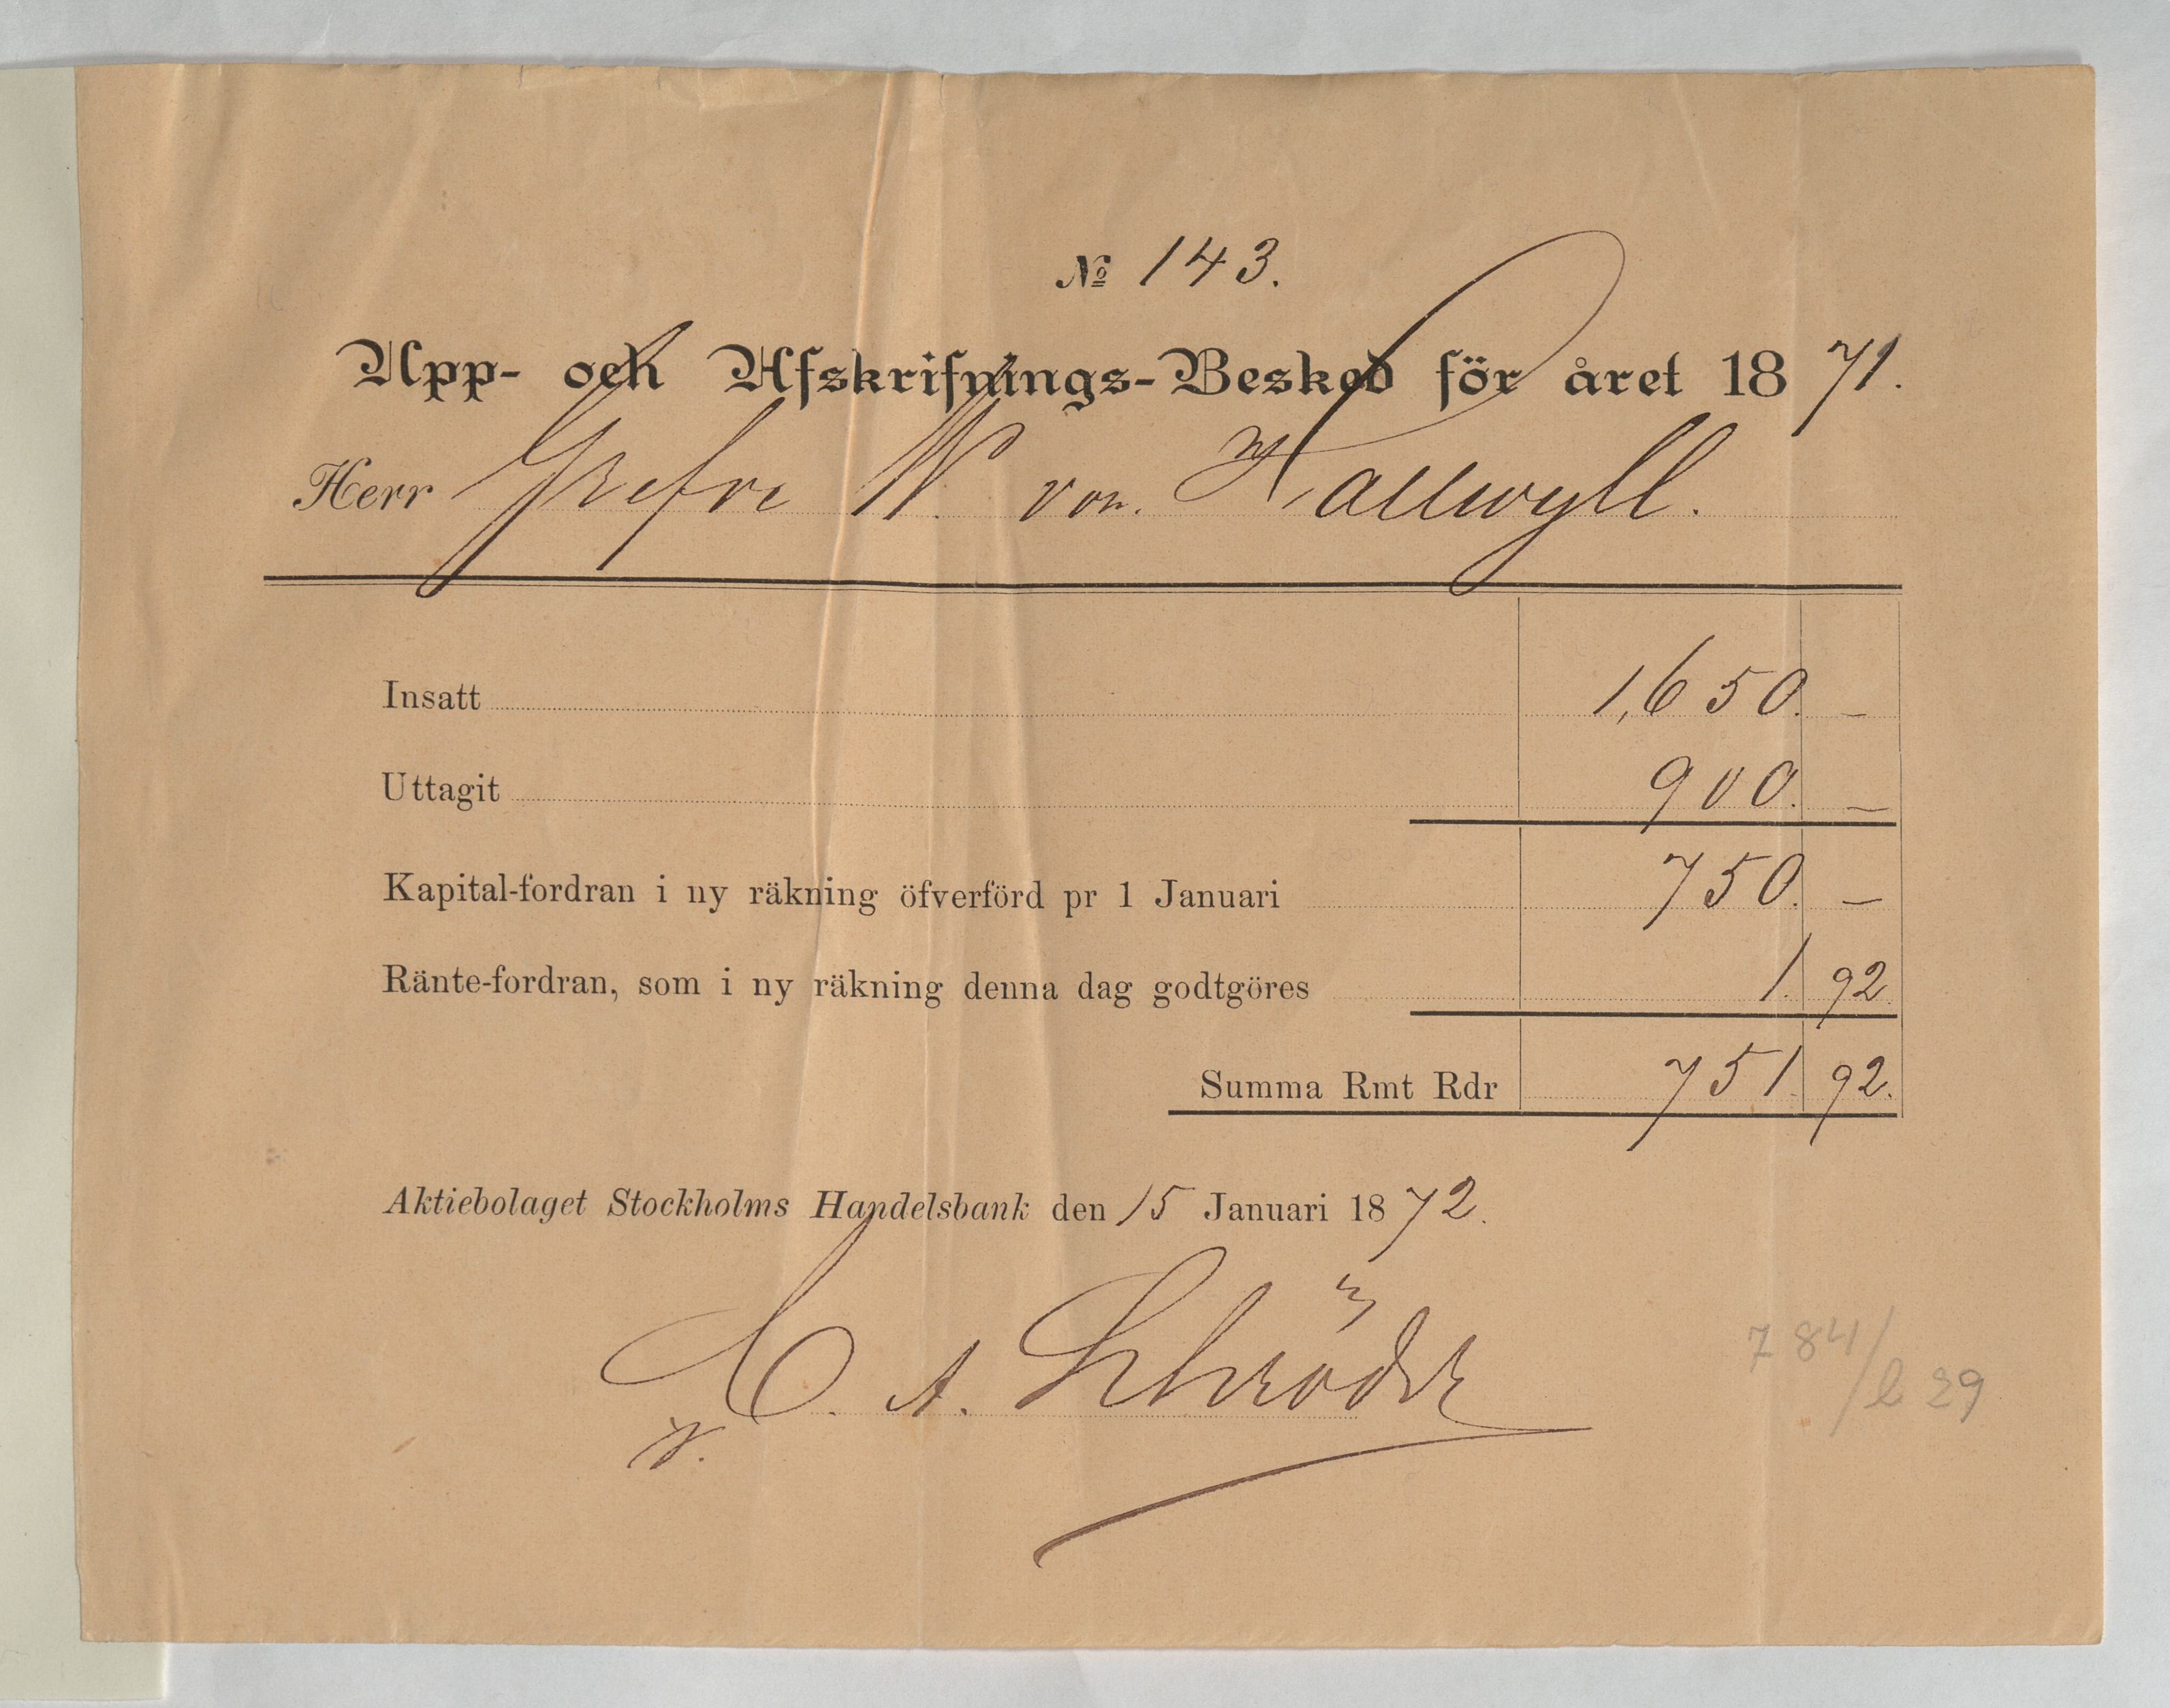 № 143.
Upp- och Afskrifnings-Besked för året 1871.
Herr Grefve W. von Hallwyll.
Insatt 1,650. –
Uttagit 900. –
Kapital-fordran i ny räkning öfverförd pr 1 Januari 750. –
Ränte-fordran, som i ny räkning denna dag godtgöres 1. 92.
Summa Rmt Rdr 751. 92.
Aktiebolaget Stockholms Handelsbank den 15 Januari 1872.
C. A. Schröder
784/